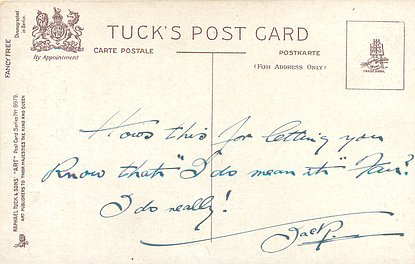 TUCK'S POST CARD
CARTE POSTALE
POSTKARTE
(FOR ADDRESS ONLY)
By Appointment
TRADE MARK
FANCY FREE
Chromographed in Berlin.
RAPHAEL TUCK & SONS "ART" Post Card Series Nº 9979.
ART PUBLISHERS TO THEIR MAJESTIES THE KING AND QUEEN
Hows this for letting you
Know that "I do mean it"
I do really!
Jack P.